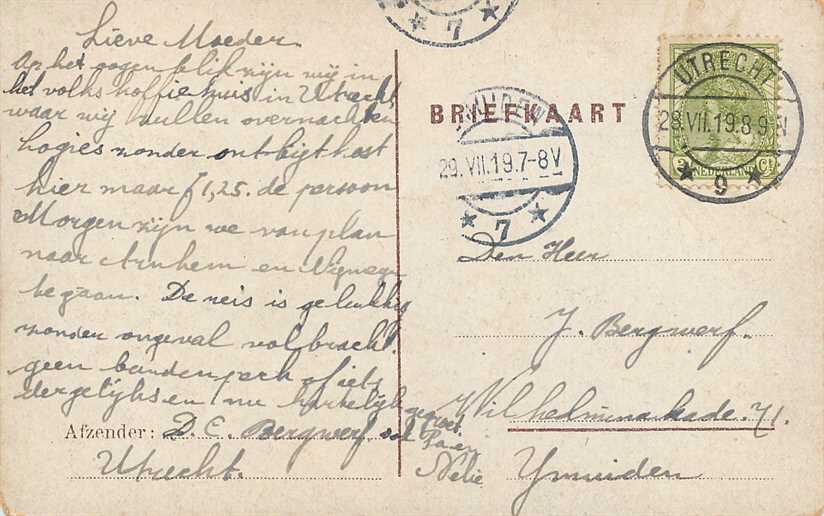 Lieve Moeder.
Op het oogenblik zijn wij in
het volks koffiehuis in Utrecht
waar wij zullen overnachten
Logies zonder ontbijt kost
hier maar f 1,25. de persoon
Morgen zijn we van plan
naar Arnhem en Nijmegen
te gaan. De reis is gelukkig
zonder ongeval volbracht.
geen bandenpech of iets
dergelijks en nu hartelijk gegroet
Afzender: D. C. Bergwerf. ook
Utrecht.
Nelie
7
BRIEFKAART
IJMUIDEN
29.VII.19.7-8V
7
UTRECHT
28.VII.19.8-9N
9
2½ Ct
NEDERLAND
Den Heer
J. Bergwerf.
Wilhelmina kade. 71.
Ymuiden